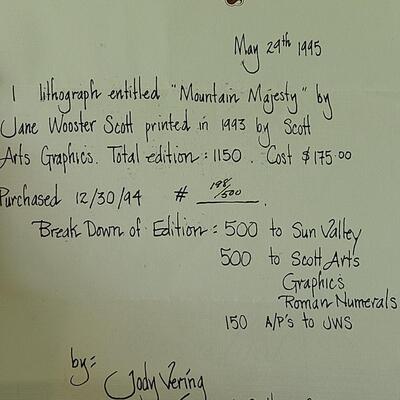 May 29th 1995
1 lithograph entitled "Mountain Majesty" by
Jane Wooster Scott printed in 1993 by Scott
Arts Graphics. Total edition: 1150. Cost $175.00
Purchased 12/30/94 # 198/500.
Break Down of Edition = 500 to Sun Valley
500 to Scott Arts
Graphics
Roman Numerals
150 A/P's to JWS
by:
Jody Vering